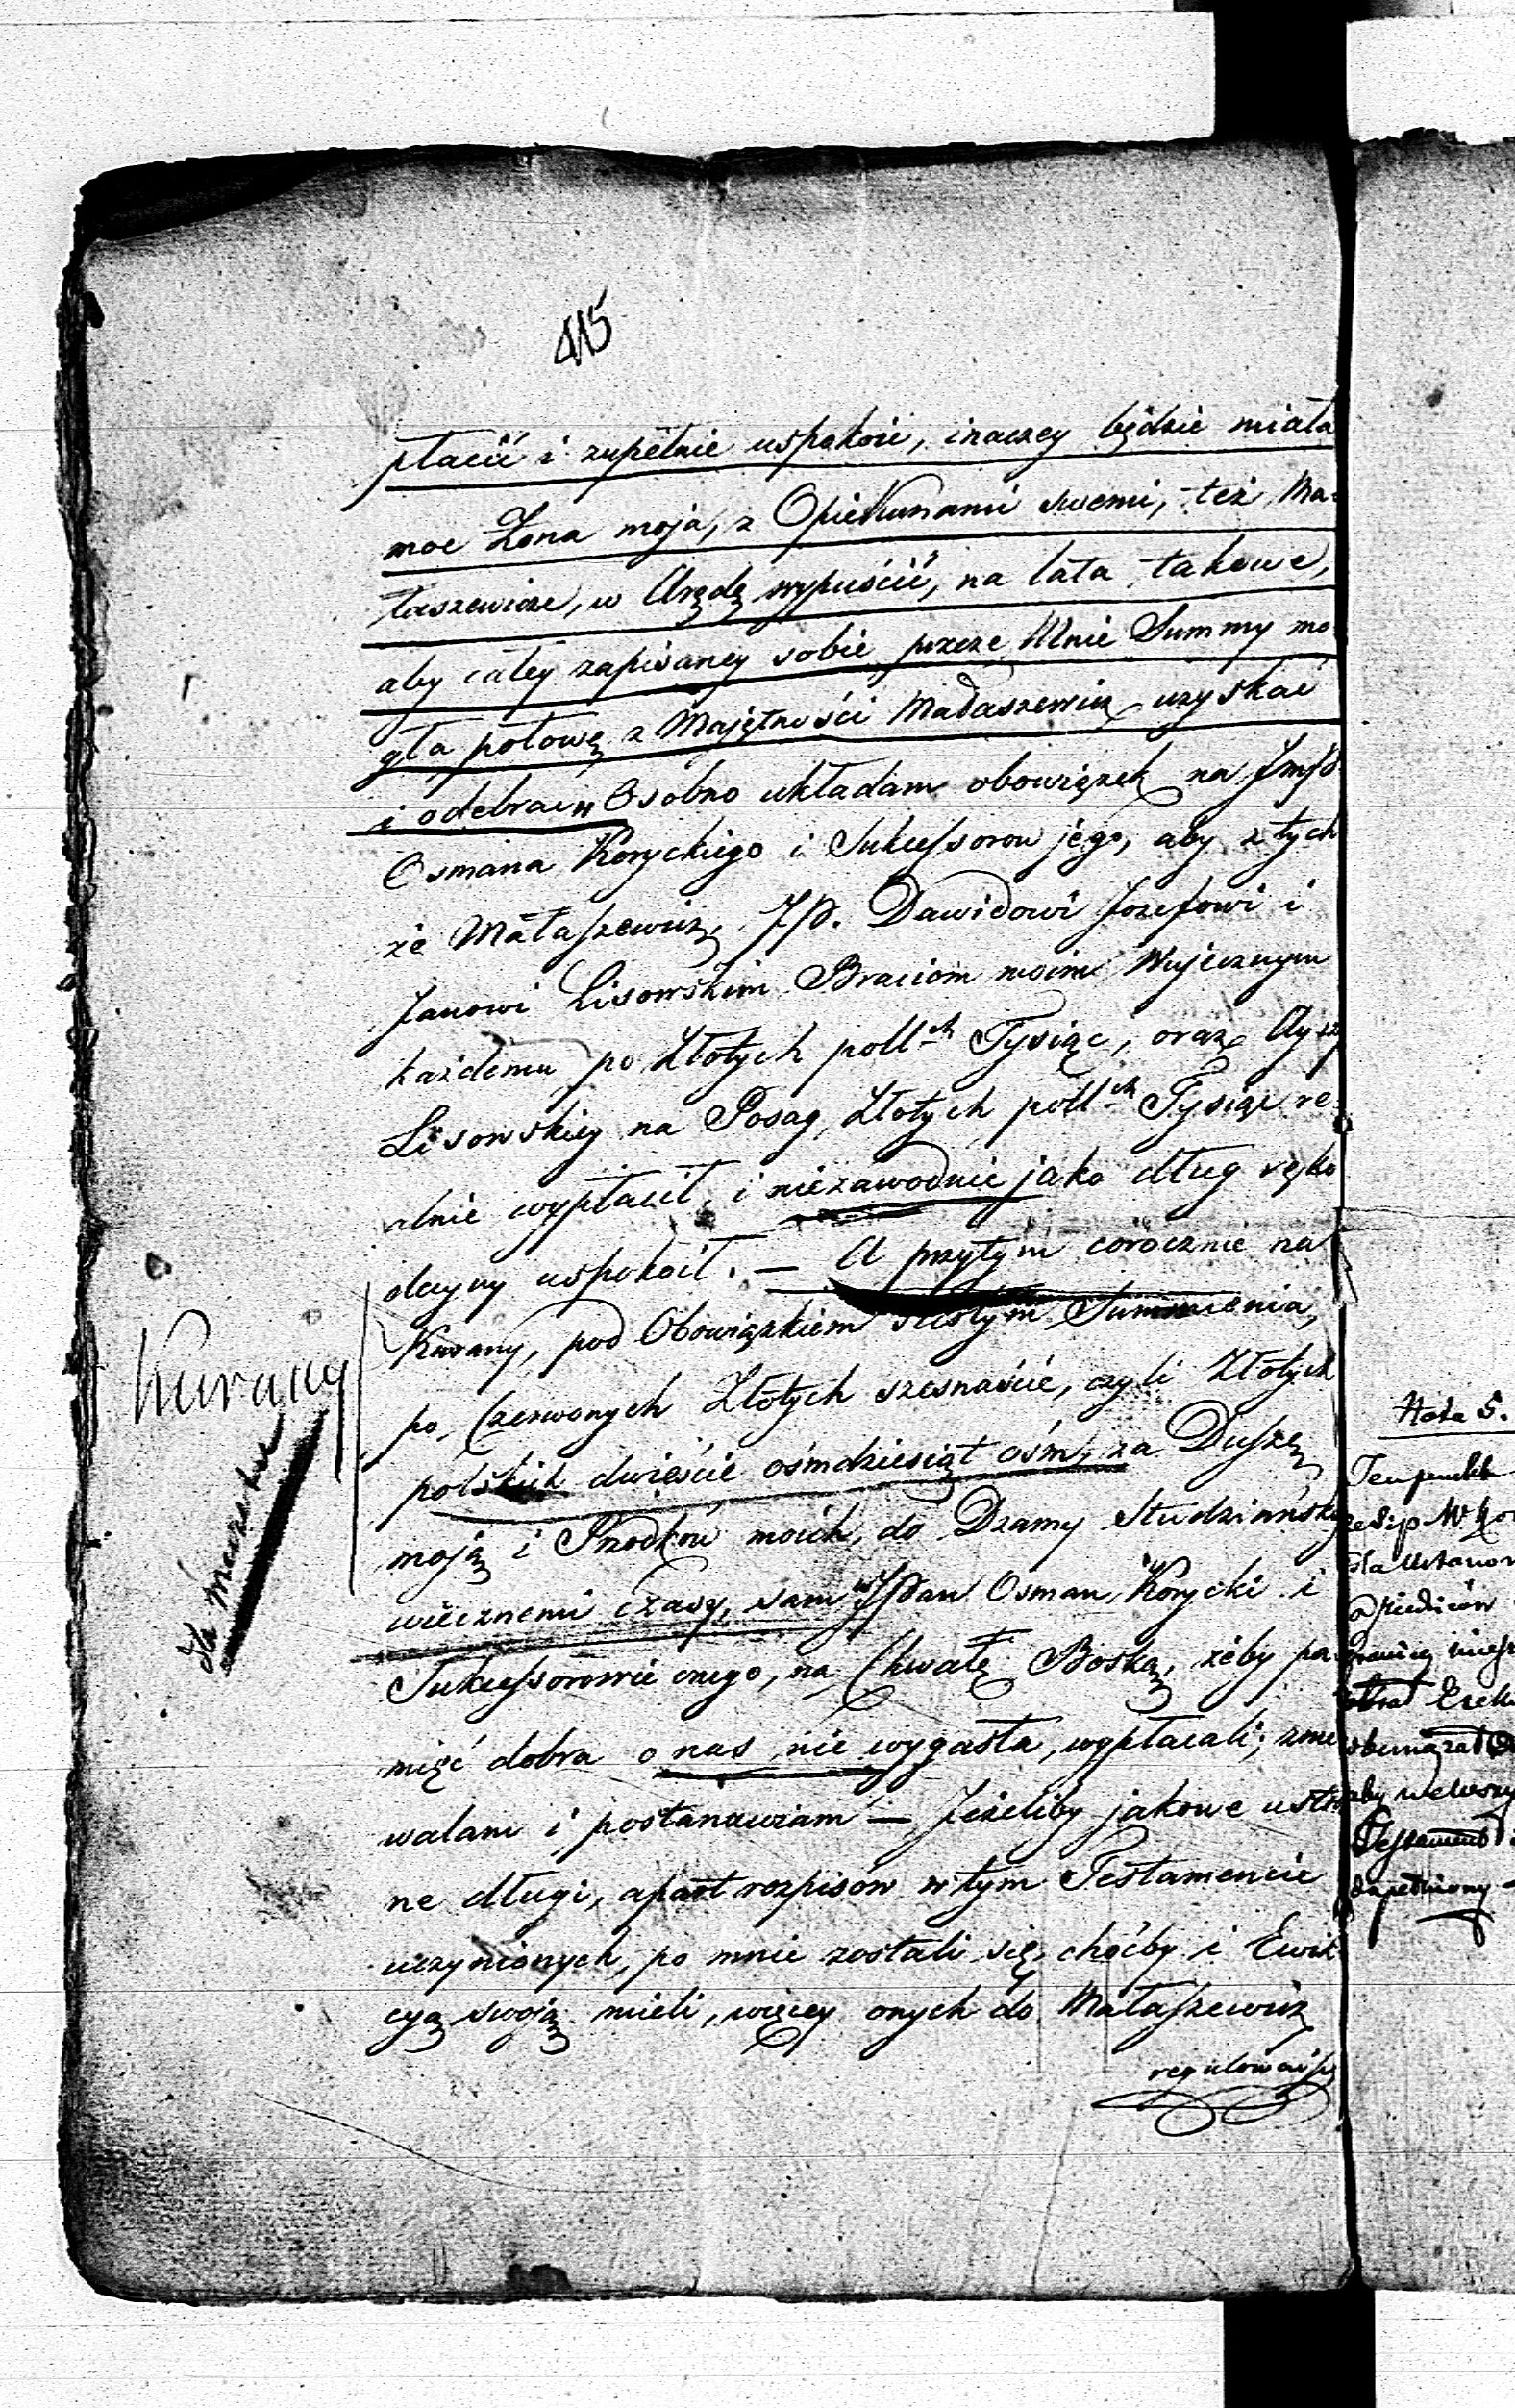 415
płacić i zupełnie uspokoić, inaczey będzie miała
moc Żona moja, z Opiekunami swemi, też Ma-
taszewicze, w Arędę wypuścić, na lata takowe,
aby całey zapisaney sobie przeze Mnie Summy mo-
gła połowę z Majętności Mataszewicz uzyskać
i odebrać Osobno układam obowiązek na
Osmana Koryckiego i Sukcessorow jego, aby z tych
że Mataszewicz, JP. Dawidowi Jozefowi i
Janowi Lisowskim Braciom moim Wujecznym
każdemu po Złotych poll:ch Tysiąc, oraz
Lisowskiey na Posag, Złotych poll:ch Tysiąc re-
alnie wypłacił, i niezawodnie jako dług ręko
dayny uspokoił. — A przytym corocznie na
Kurany, pod Obowiązkiem scisłym Sumnienia,
po Czerwonych Złotych szesnaście, czyli Złotych
polskich dwieście ośmdziesiąt ośm, za Duszę
moją i Przodków moich, do Dzamy Studziańskiey
wiecznemi czasy, sam JPan Osman Korycki i
Sukcessorowie onego, na Chwałę Boską, żeby pa-
mięć dobra o nas nie wygasła, wypłacali;
walam i postanawiam — Jeżeliby jakowe
ne długi, apart rozpisów w tym Testamencie
uczynionych, po mnie zostali się, choćby i Ewik-
cyą swoją mieli, więcey onych do Mataszewicz
regulować
Kurany
dla
Nota 5.
Ten punkt